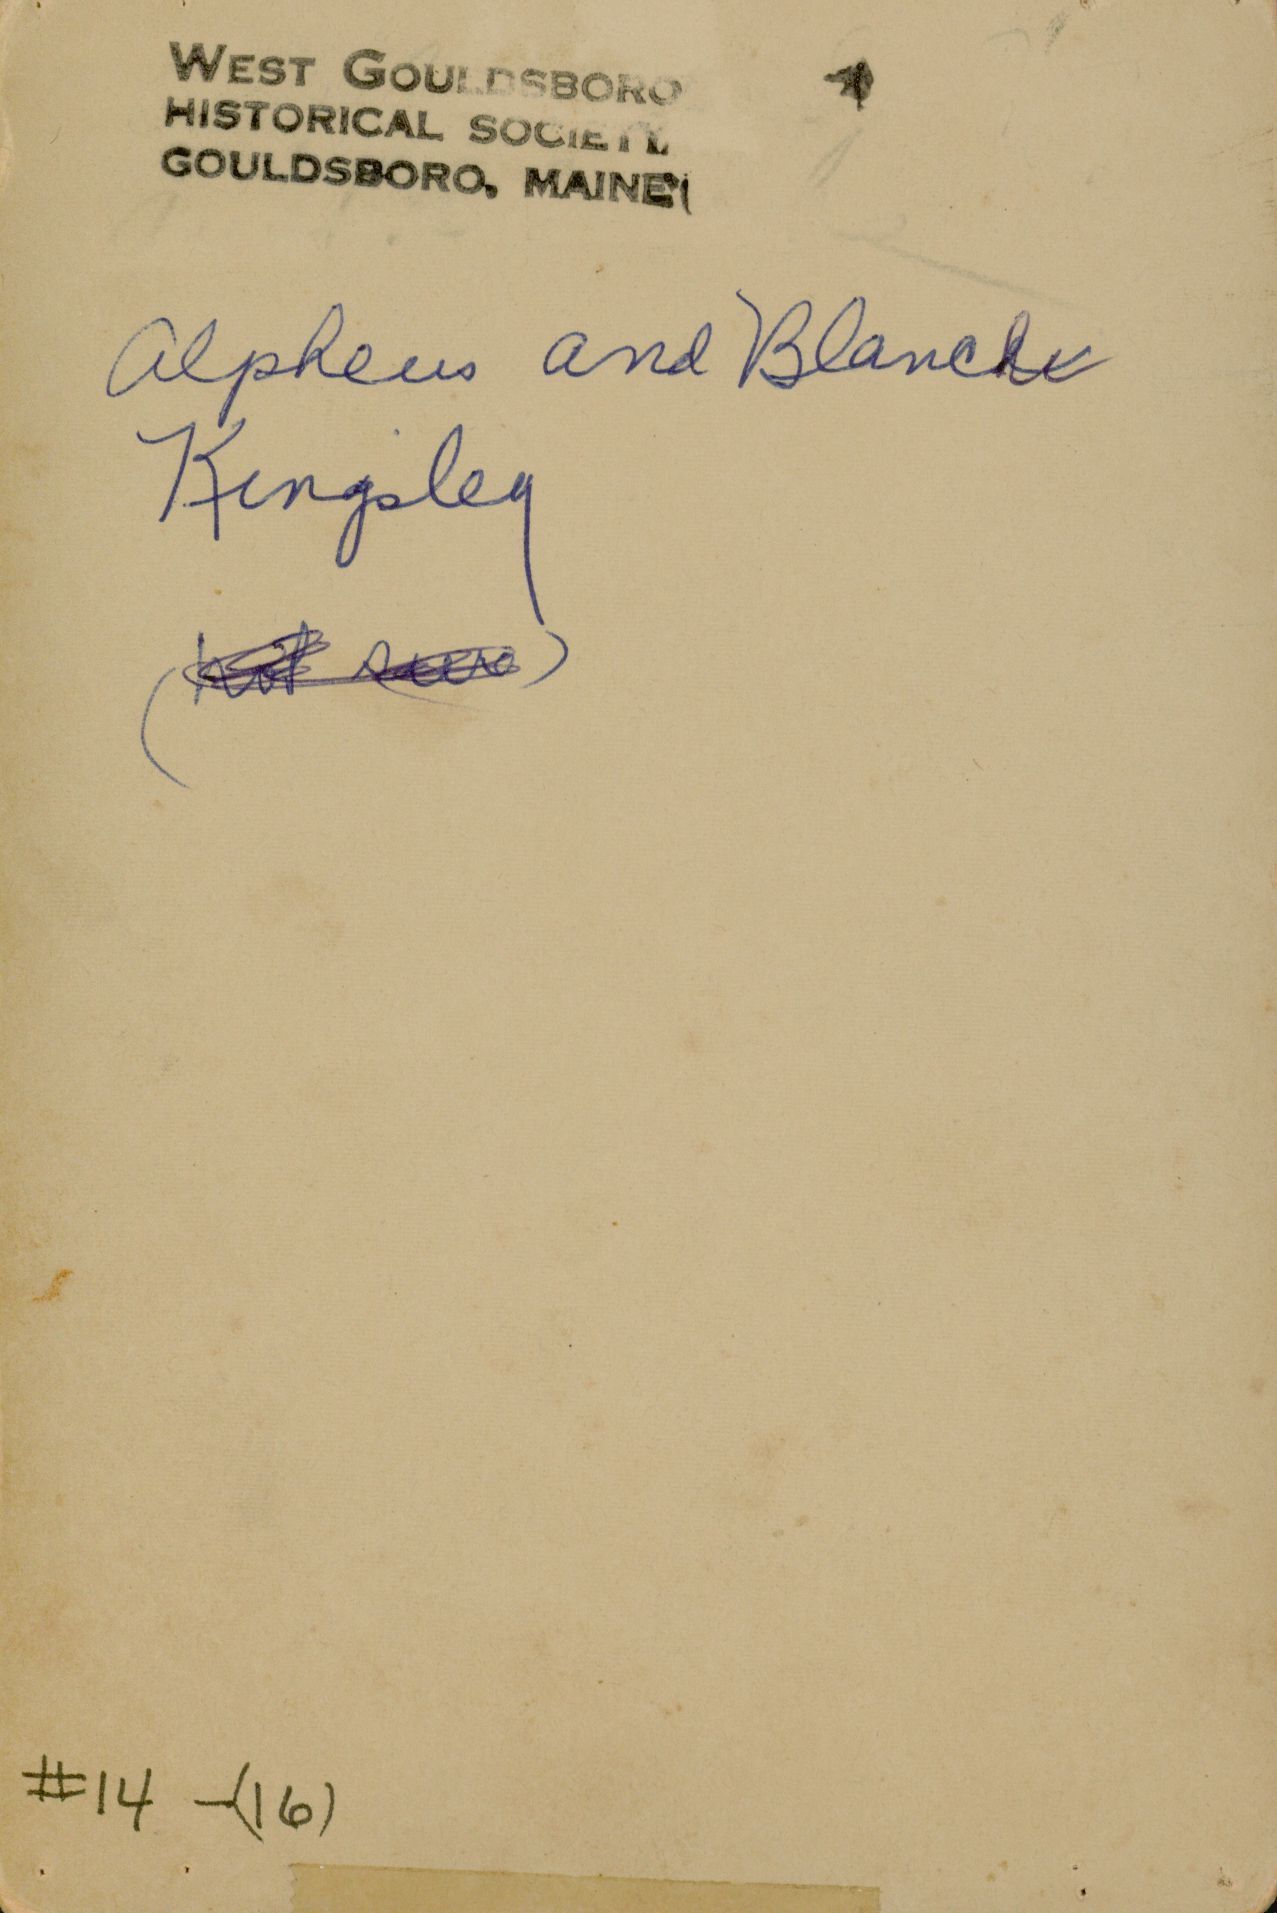 WEST GOULDSBORO
HISTORICAL SOCIETY
GOULDSBORO, MAINE
Alpheus and Blanche
Kingsley
(not sure)
#14 -(16)